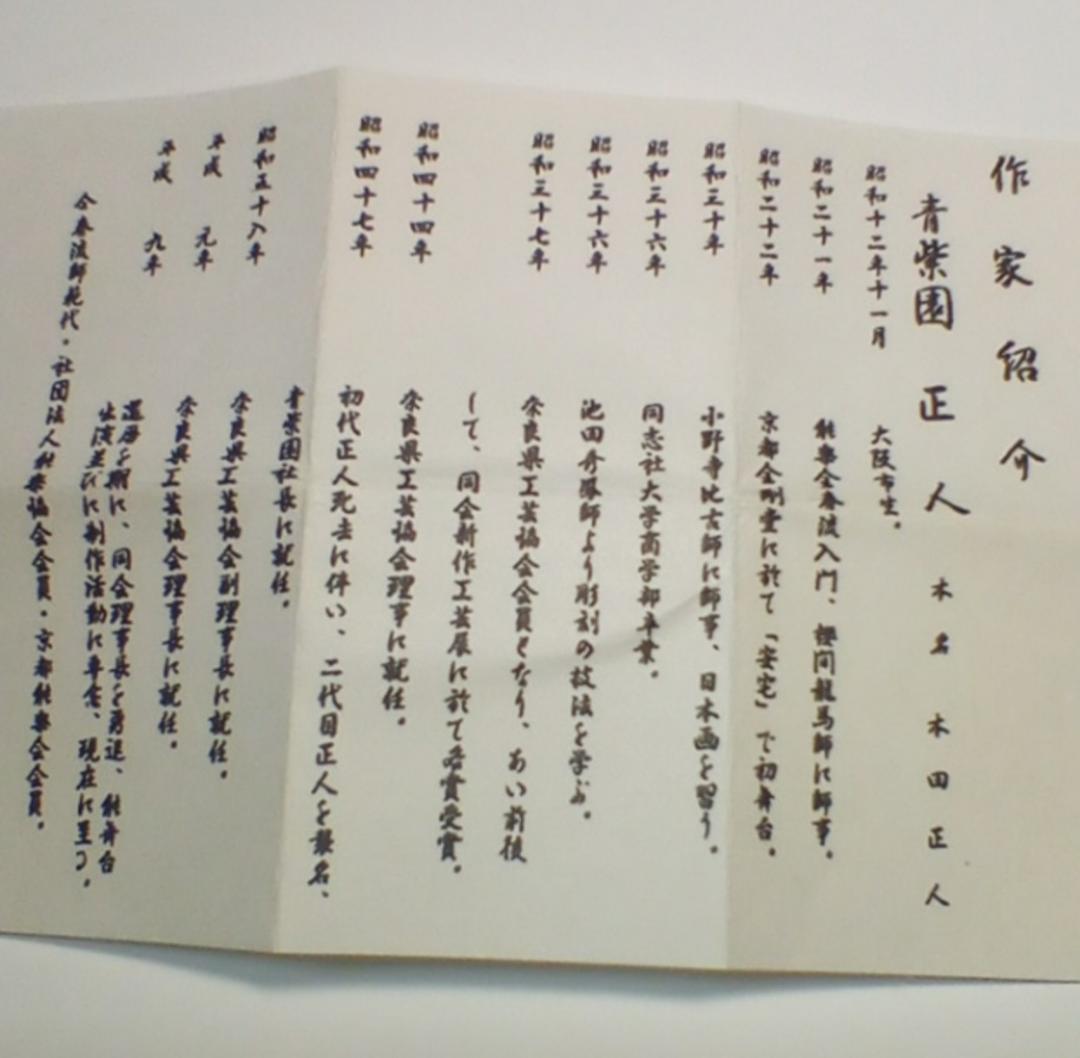 作家紹介
青柴園 正人 本名 木田正人
昭和十二年十一月 大阪市生。
昭和二十一年 能楽金春流入門、櫻間龍馬師に師事。
昭和二十二年 京都金剛堂に於て「安宅」で初舞台。
昭和三十年 小野寺比古師に師事、日本画を習う。
昭和三十六年 同志社大学商学部卒業。
昭和三十六年 池田 師より彫刻の技法を学ぶ。
昭和三十七年 奈良県工芸協会会員となり、あい前後
して、同会新作工芸展に於て各賞受賞。
昭和四十四年 奈良県工芸協会理事に就任。
昭和四十七年 初代正人死去に伴い、二代目正人を襲名、
青柴園社長に就任。
昭和五十八年 奈良県工芸協会副理事長に就任。
平成 元年 奈良県工芸協会理事長に就任。
平成 九年 還暦を期に、同会理事長を勇退、能舞台
出演並びに制作活動に専念、現在に至る。
金春流師範代。社団法人能楽協会会員。京都能楽会会員。